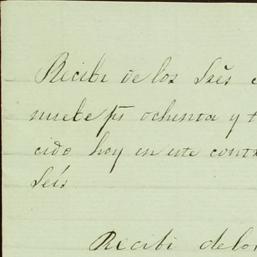 Recibi de los Sres
nuebe ps ochenta y t
cido hoy en este conta
Seis
Recibi de los